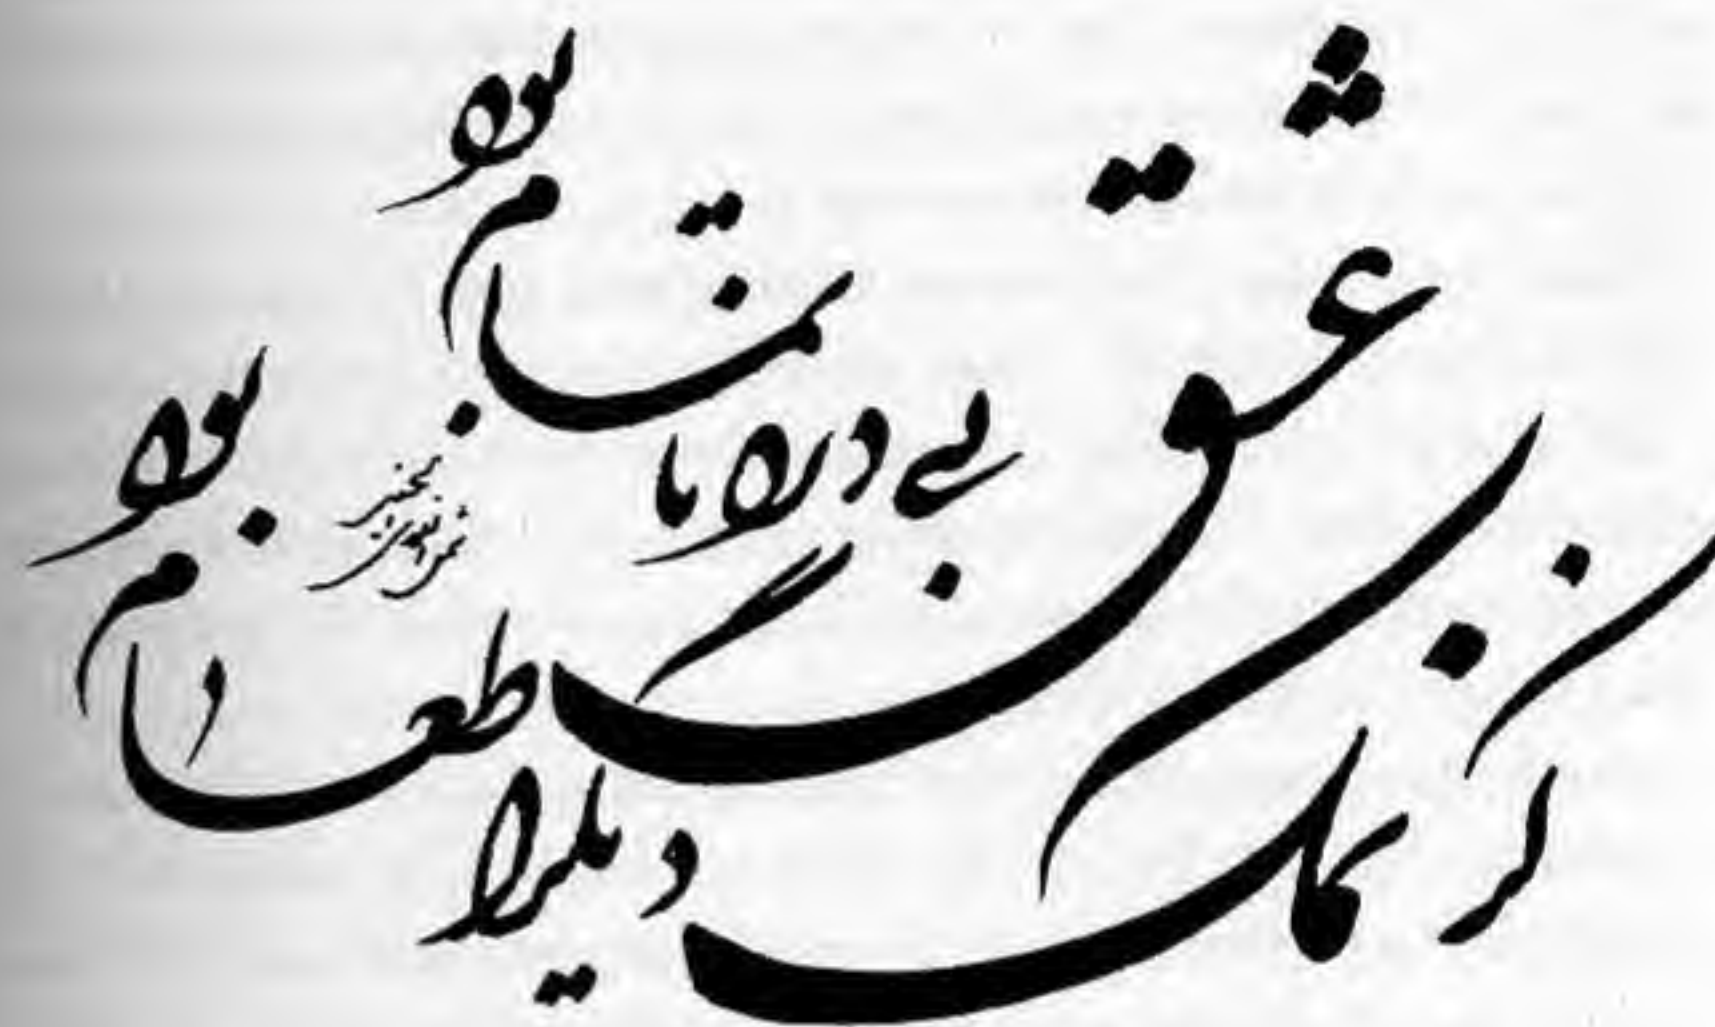 عشق بی درد ناتمام بود
کز نمک دیگ را طعام بود